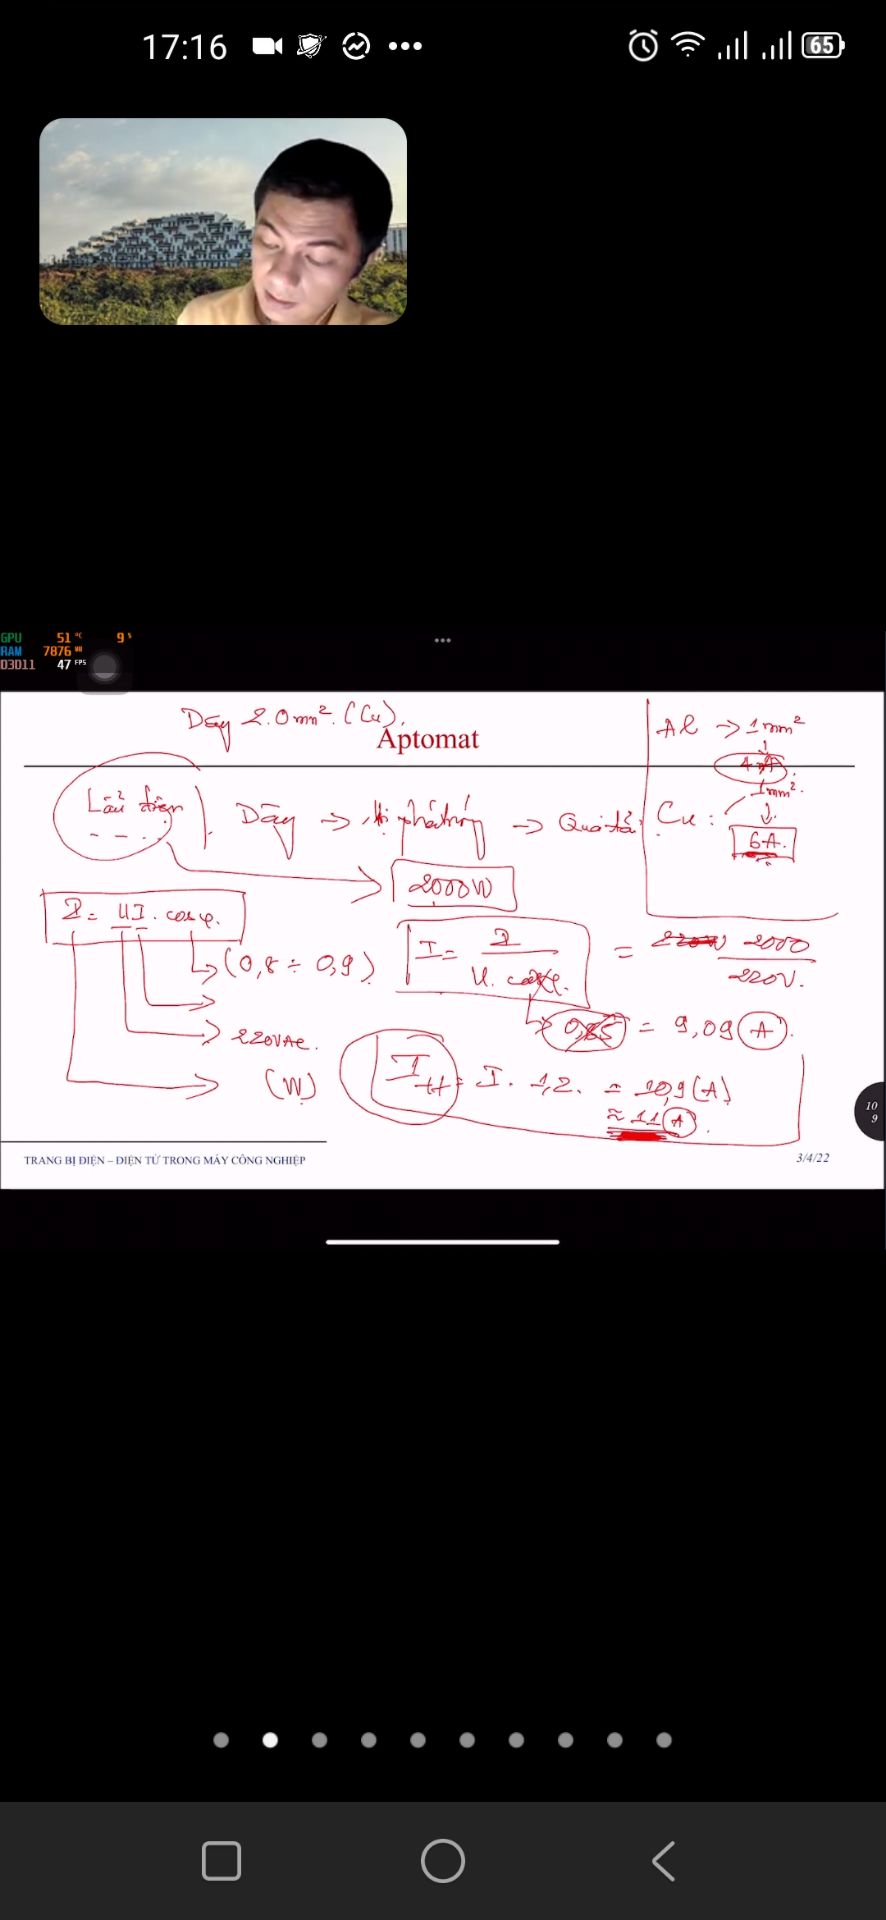 17:16
65
GPU 51 °C 9 %
RAM 7876 MB
D3D11 47 FPS
Dây 2.0mm². (Cu).
Aptomat
Al → 1mm²
4A
1mm².
Cu:
6A.
Lẩu điện
Dây → → Quá tải
2000W
P = UI. cosφ.
→ (0,8 ÷ 0,9)
I = P / U. cosφ. = 2000 / 220V.
→ 0,85 = 9,09 (A).
→ 220VAC.
→ (W)
Itt = I. 1,2. = 10,9 (A)
≈ 11 (A).
10
9
TRANG BỊ ĐIỆN – ĐIỆN TỬ TRONG MÁY CÔNG NGHIỆP
3/4/22